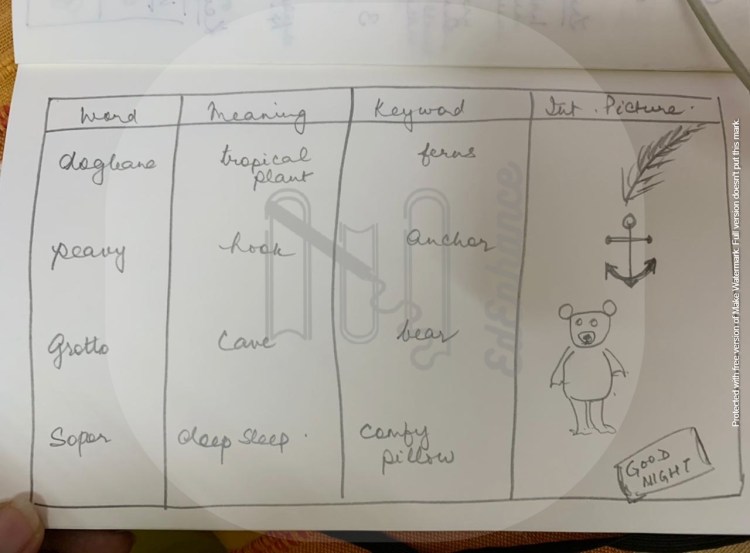 Word Meaning Keyword Int. Picture.
dogbane tropical plant ferns
peavy hook anchor
Grotto Cave bear
Sopor deep sleep. comfy pillow
GOOD NIGHT
3h3nhance
Protected with free version of Make Watermark. Full version doesn't put this mark.